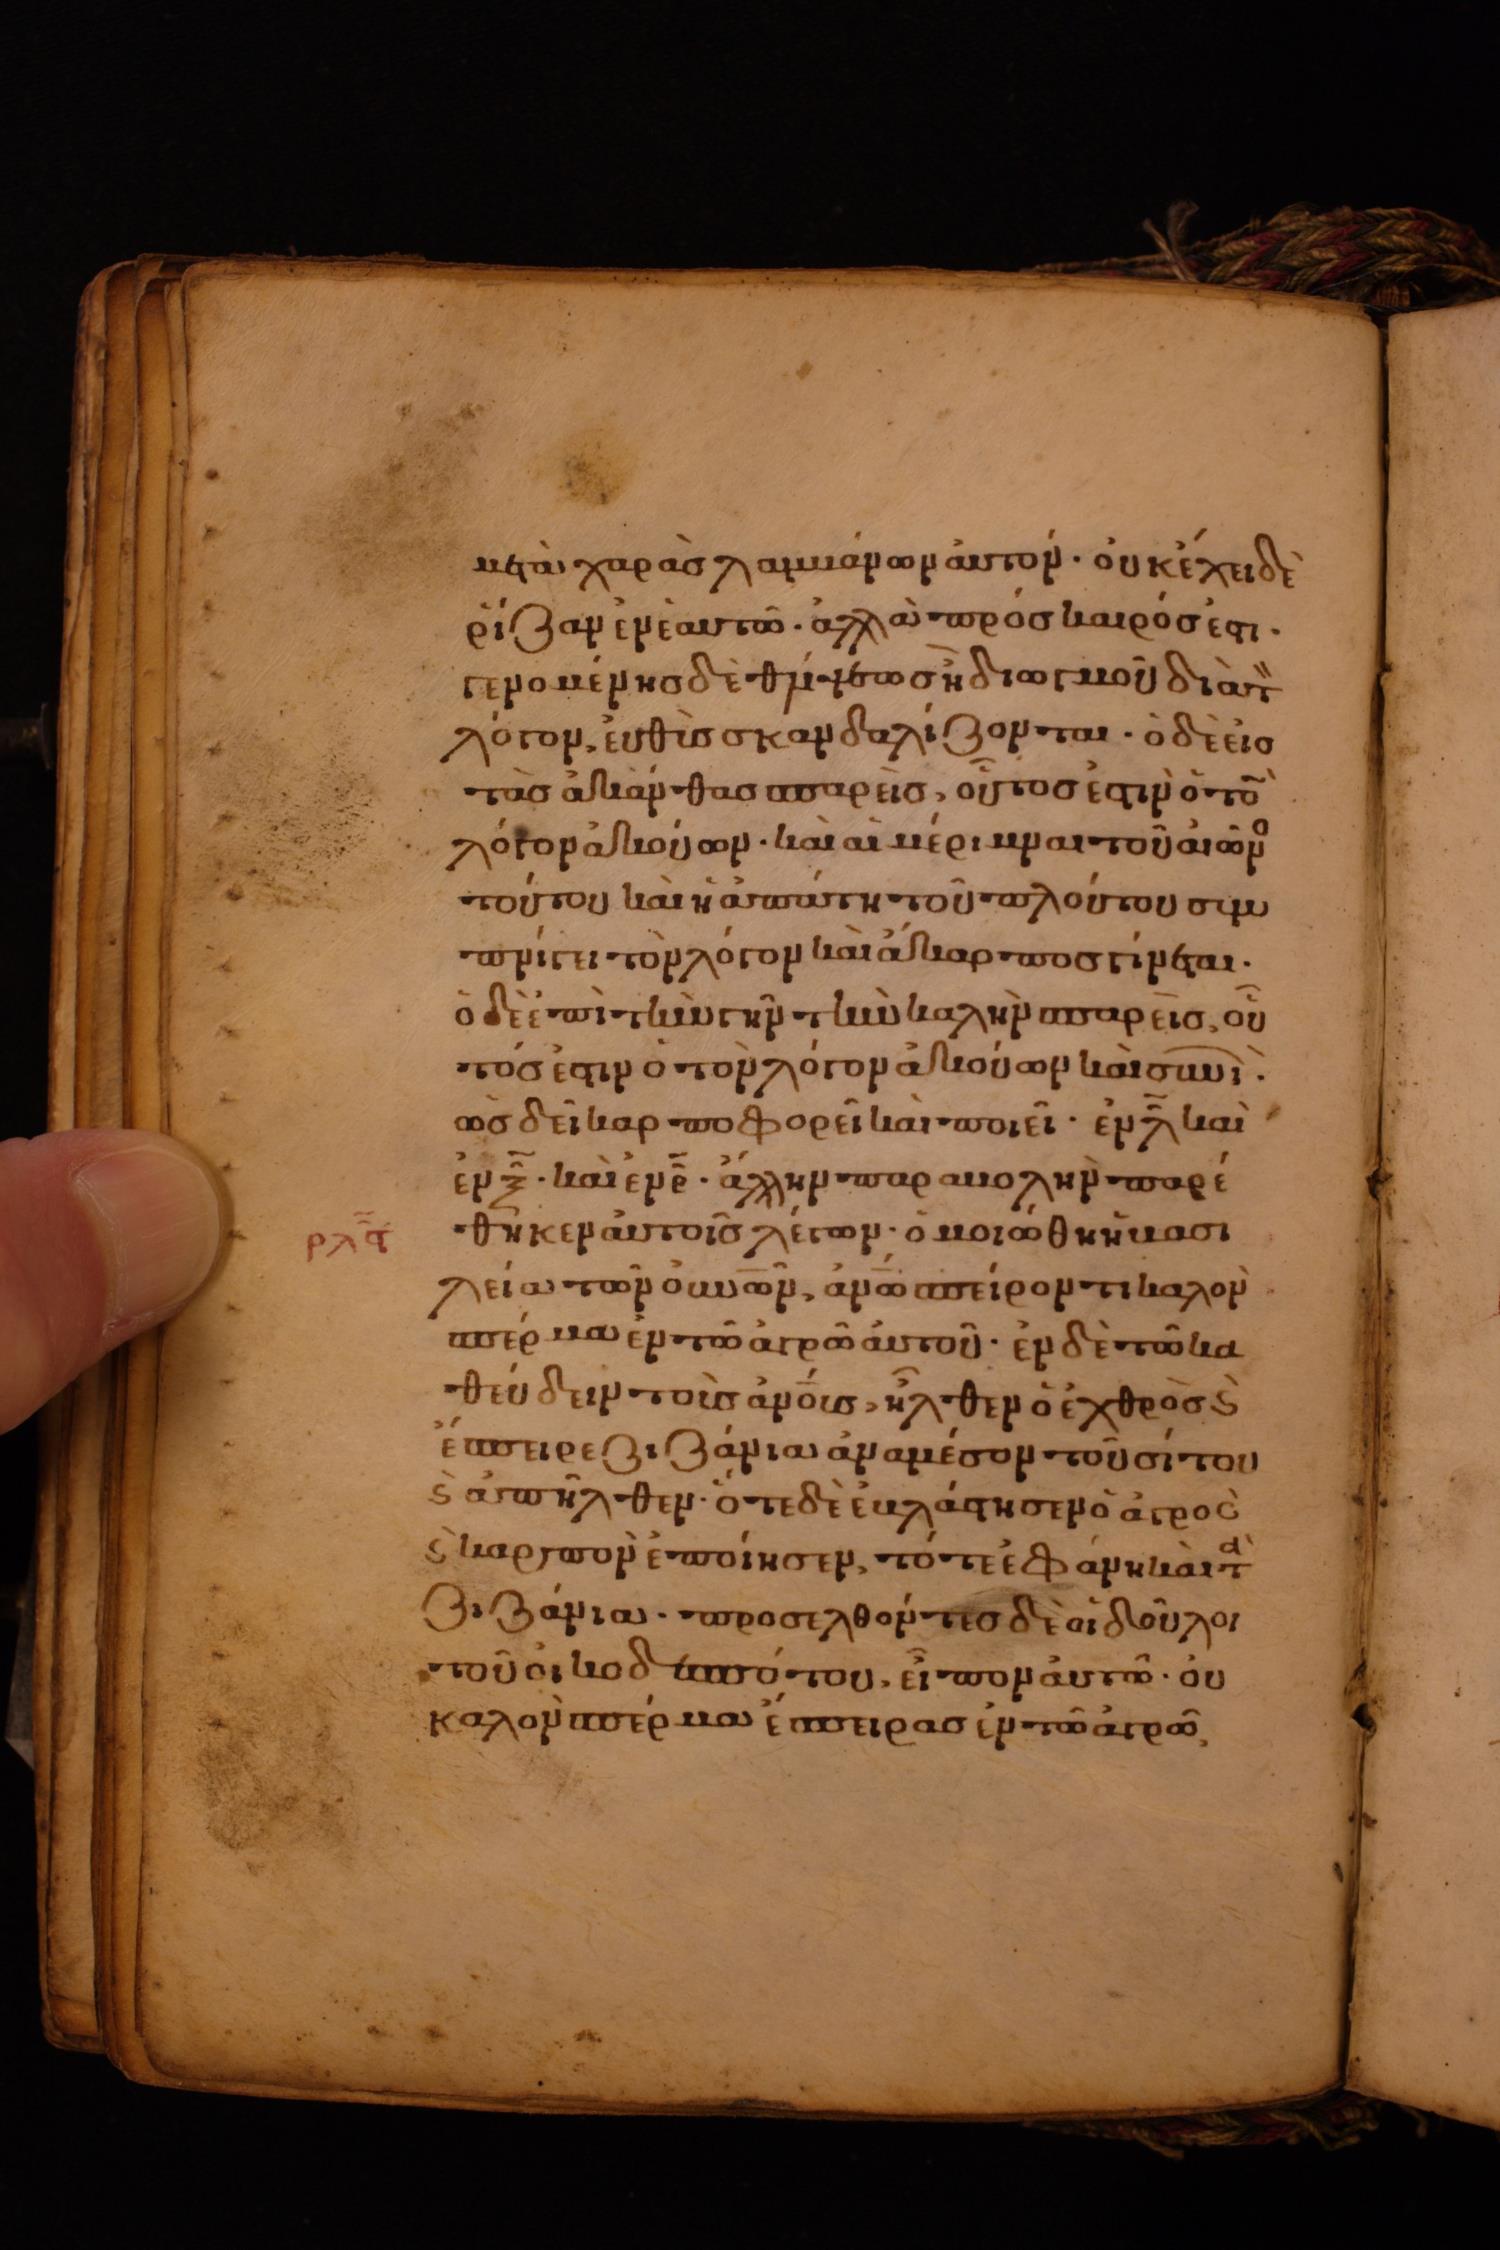 μετὰ χαρὰσ λαμβάνων ἀυτόν · ὀυκ ἔχει δὲ
ῥίζαν ἐν ἑαυτῶ · ἀλλὰ πρόσκαιρόσ ἐστι ·
γενομένησ δὲ θλίψεωσ ἢ διωγμοῦ διὰ τ̀
λόγον, ἐυθὺσ σκανδαλίζονται · ὁ δὲ ἐισ
τὰσ ἀκάνθασ σπαρεὶσ, οὗτοσ ἐστιν ὁ τὸ
λόγον ἀκούων · καὶ αἱ μέριμναι τοῦ αἰῶνο
τούτου καὶ ἡ ἀπάτη τοῦ πλούτου συμ
πνίγει τὸν λόγον καὶ ἄκαρποσ γίνεται ·
ὁ δὲ ἐπὶ τὴν γῆν τὴν καλὴν σπαρεὶσ, οὗ
τόσ ἐστιν ὁ τὸν λόγον ἀκούων καὶ συνιὼ ·
ὡσ δεῖ καρποφορεῖ καὶ ποιεῖ · ἐν λ̄ καὶ
ἐν ξ̄ · καὶ ἐν ρ̄ · ἄλλην παραβολὴν παρέ
ρλϛ θηκεν ἀυτοῖσ λέγων · ὁμοιώθη ἡ βασι
λεία τῶν ὀυνῶν, ἀνω̄ σπείροντι καλὸν
σπέρμα ἐν τῶ ἀγρῶ ἀυτοῦ · ἐν δὲ τῶ κα
θεύδειν τοὺσ ἀνο̄υσ, ἦλθεν ὁ ἐχθρὸσ ϗ
ἔσπειρε ζιζάνια ἀναμέσον τοῦ σίτου
ϗ ἀπῆλθεν · ὅτε δὲ ἐβλάστησεν ὁ ἀγρὸσ
ϗ καρπὸν ἐποίησεν, τότε ἐφάνη καὶ τὰ
ζιζάνια · προσελθόντεσ δὲ οἱ δοῦλοι
τοῦ ὀικοδεσπότου, εἶπον ἀυτῶ · ὀυ
καλὸν σπέρμα ἔσπειρασ ἐν τῶ ἀγρῶ,